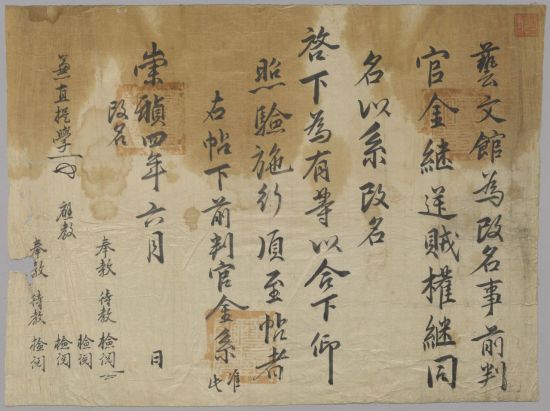 藝文館為改名事前判
官金継逆賊權継同
名以系改名
啓下為有等以合下仰
照驗施行須至帖者
右帖下前判官金系 准此
崇禎四年六月 日
改名
兼直提學
應教
奉教 待教 檢閱
檢閱
檢閱
奉教 待教 檢閱